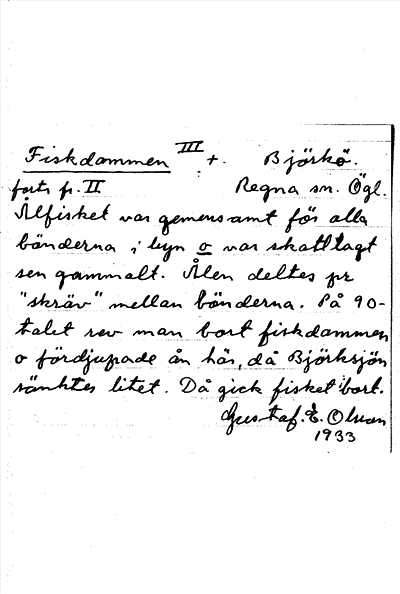 Fiskdammen III +. Björkö.
forts fr. II Regna sn. Ögl.
Ålfisket var gemensamt för alla
bönderna i byn o var skattlagt
sen gammalt. Ålen deltes pr
"skräv" mellan bönderna. På 90-
talet rev man bort fiskdammen
o fördjupade ån här, då Björksjön
sänktes litet. Då gick fisket bort.
Gustaf. E. Olsson
1933